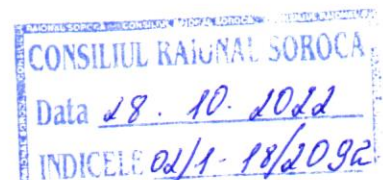 CONSILIUL RAIONAL SOROCA
Data 28. 10. 2022
INDICELE 02/1-18/2092